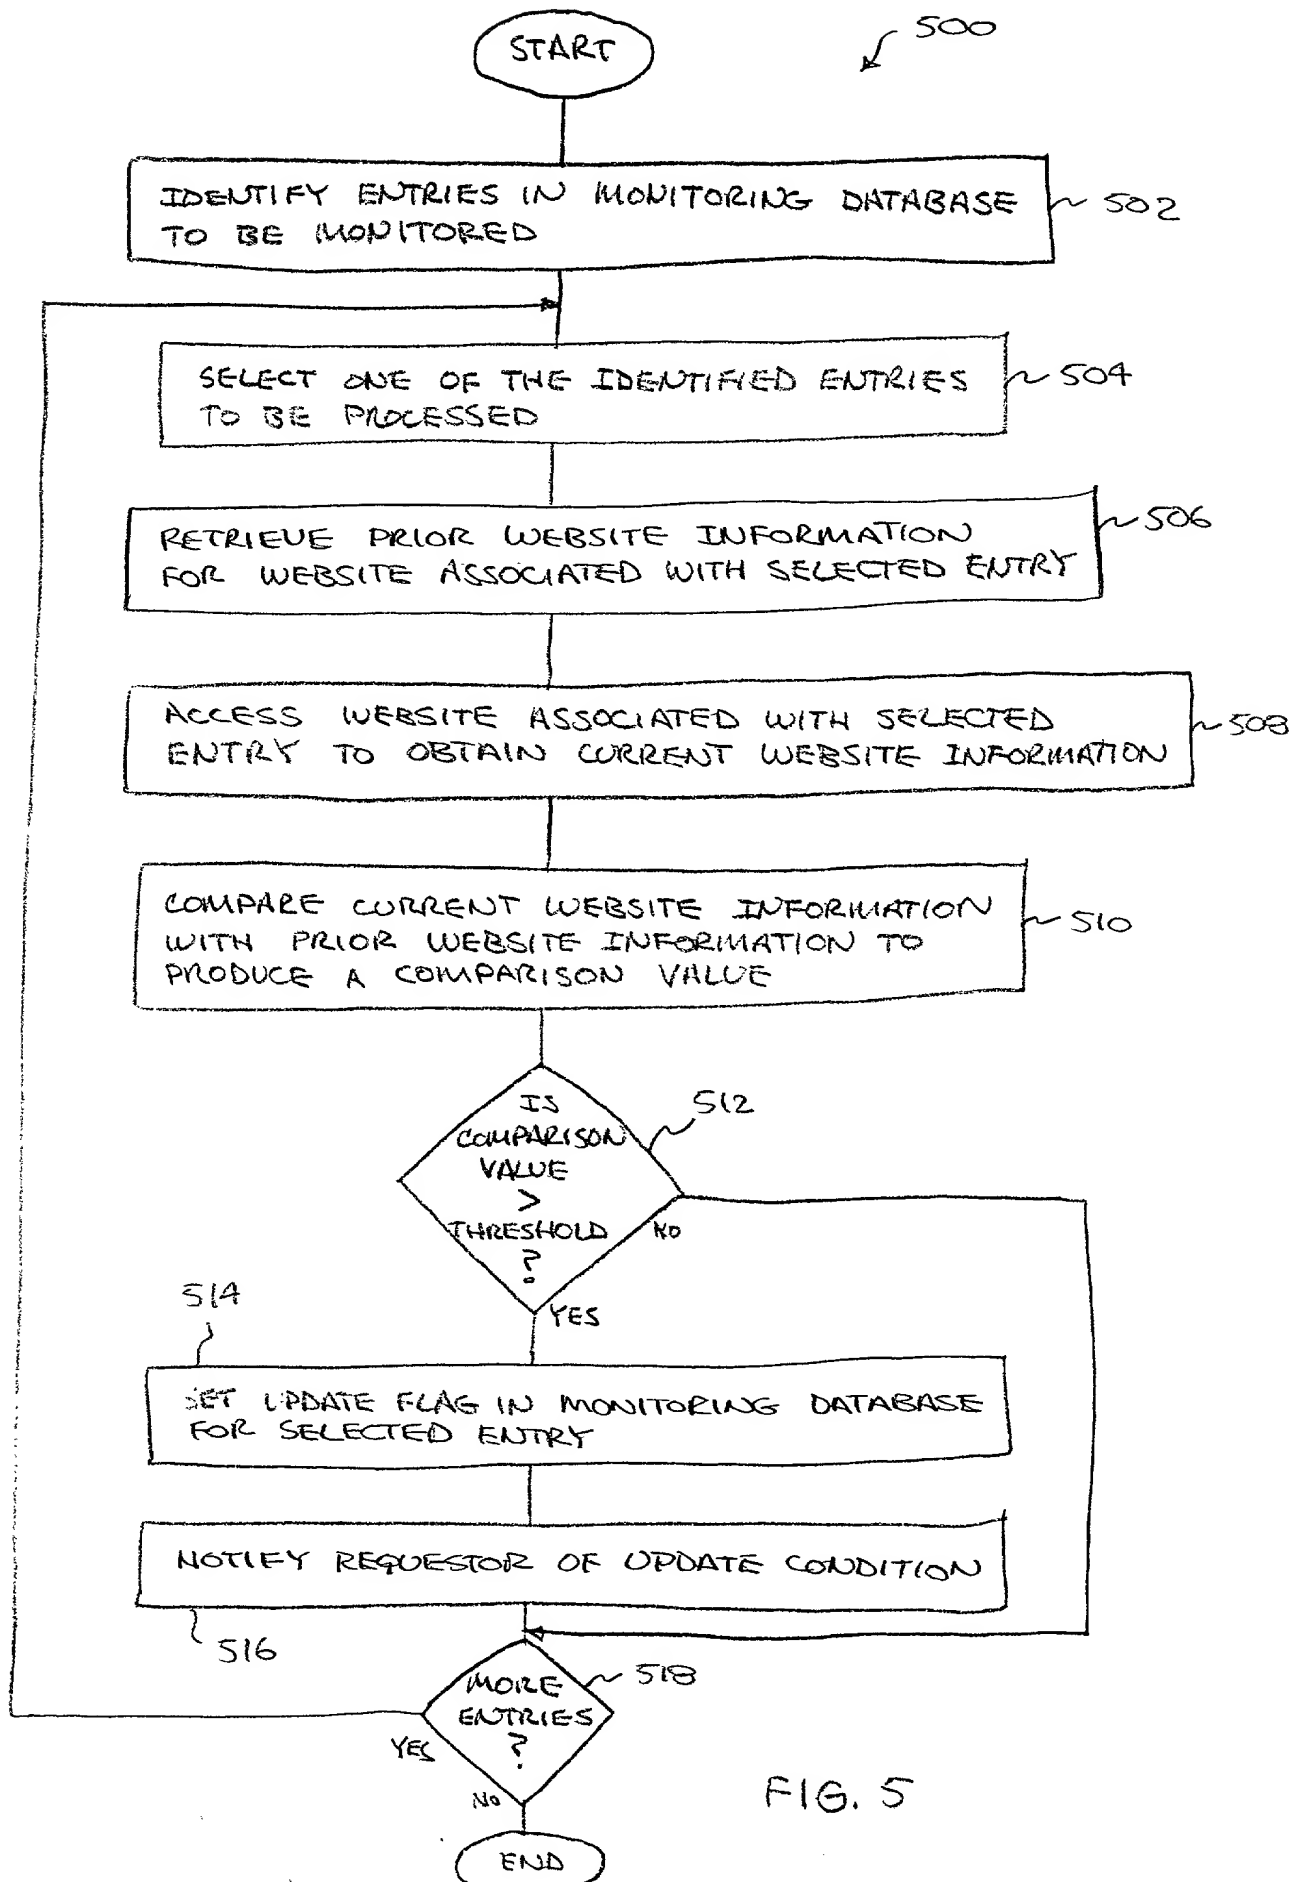 START
500
IDENTIFY ENTRIES IN MONITORING DATABASE
TO BE MONITORED
502
SELECT ONE OF THE IDENTIFIED ENTRIES
TO BE PROCESSED
504
RETRIEVE PRIOR WEBSITE INFORMATION
FOR WEBSITE ASSOCIATED WITH SELECTED ENTRY
506
ACCESS WEBSITE ASSOCIATED WITH SELECTED
ENTRY TO OBTAIN CURRENT WEBSITE INFORMATION
508
COMPARE CURRENT WEBSITE INFORMATION
WITH PRIOR WEBSITE INFORMATION TO
PRODUCE A COMPARISON VALUE
510
IS
COMPARISON
VALUE
>
THRESHOLD
?
512
NO
YES
514
SET UPDATE FLAG IN MONITORING DATABASE
FOR SELECTED ENTRY
NOTIFY REQUESTOR OF UPDATE CONDITION
516
MORE
ENTRIES
?
518
YES
NO
END
FIG. 5